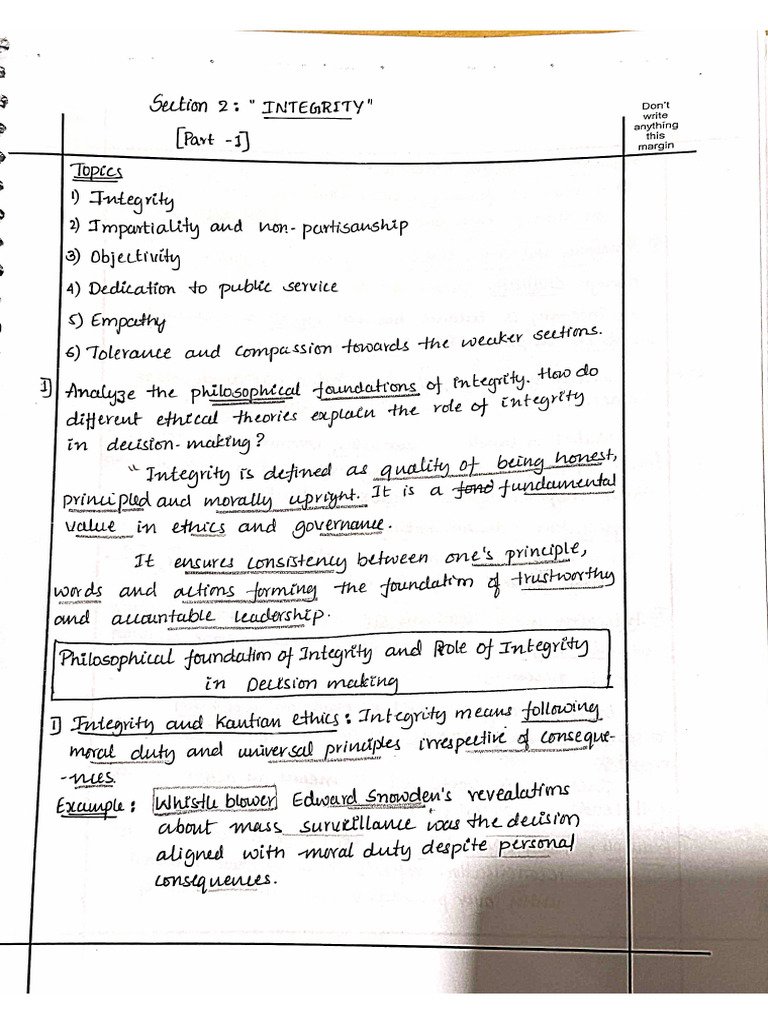 Section 2: "INTEGRITY"
[Part -I]
Don't
write
anything
this
margin
Topics
1) Integrity
2) Impartiality and non-partisanship
3) Objectivity
4) Dedication to public service
5) Empathy
6) Tolerance and compassion towards the weaker sections.
I] Analyze the philosophical foundations of integrity. How do
different ethical theories explain the role of integrity
in decision-making?
"Integrity is defined as quality of being honest,
principled and morally upright. It is a fond fundamental
value in ethics and governance.
It ensures consistency between one's principle,
words and actions forming the foundation of trustworthy
and accountable leadership.
Philosophical foundation of Integrity and Role of Integrity
in Decision making
1) Integrity and Kantian ethics: Integrity means following
moral duty and universal principles irrespective of conseque-
-nces.
Example: Whistle blower Edward Snowden's revealations
about mass surveillance was the decision
aligned with moral duty despite personal
consequences.